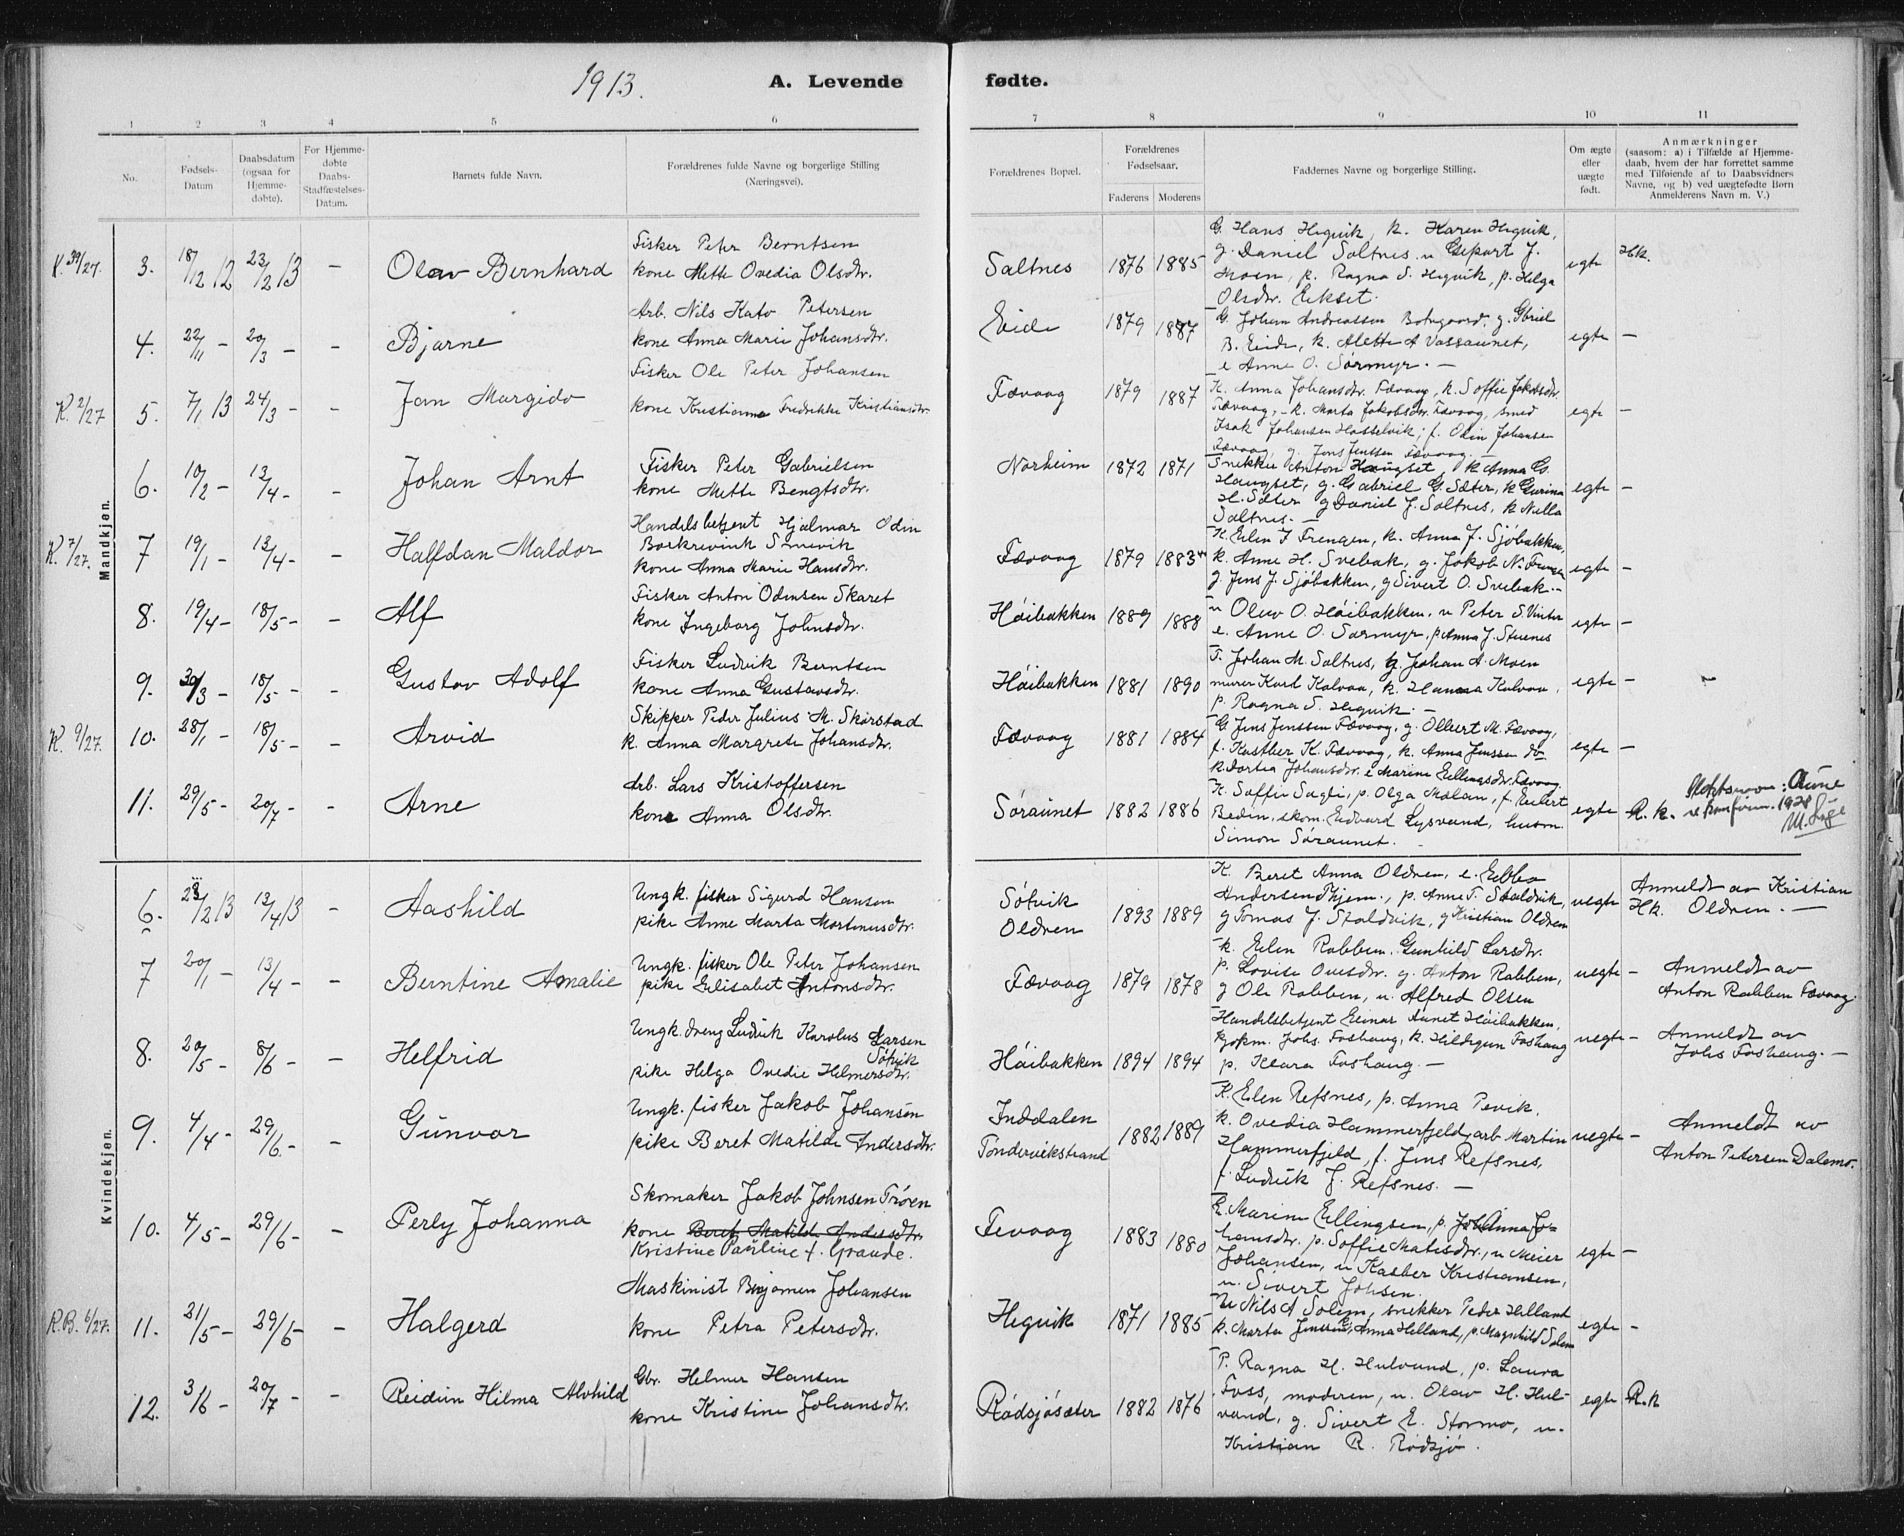 1913.
A. Levende fødte.
1 2 3 4 5 6 7 8 9 10 11
No.
Fødsels-Datum
Daabsdatum (ogsaa for Hjemmedøbte).
For Hjemmedøbte Daabs-Stadfæstelses-Datum.
Barnets fulde Navn.
Forældrenes fulde Navne og borgerlige Stilling (Næringsvei).
Forældrenes Bopæl.
Forældrenes Fødselsaar.
Faderens Moderens
Faddernes Navne og borgerlige Stilling.
Om ægte eller uægte født.
Anmærkninger (saasom: a) i Tilfælde af Hjemmedaab, hvem der har forrettet samme med Tilføiende af to Daabsvidners Navne, og b) ved uægtefødte Børn Anmelderens Navn m. V.)
Mandkjøn.
K. 39/27. 3. 18/12 12 23/2 13 - Olav Bernhard
Fisker Peter Berntsen
kone Mette Ovedia Olsdtr.
Saltnes 1876 1885
G. Hans Hegvik, k. Karen Hegvik,
g. Daniel Saltnes, u Gepart J.
Moen, p. Ragna S. Hegvik, p. Helga
Olsdtr. Eikset.
egte Hk.
4. 22/11 - 20/3 - - Bjarne
Arb. Nils Kato Petersen
kone Anna Marie Johansdtr.
Eide 1879 1887
G. Johan Andreassen Botngaard, g. Gbriel
B. Eide, k. Alette A Vassaunet,
e Anne O. Sørmyr. -
egte -
K. 2/27 5. 7/1 13 24/3 - - Jan Margido
Fisker Ole Peter Johansen
kone Kristianna Fredrikke Kristiansdtr.
Fævaag 1879 1887
K. Anna Johansdtr. Fævaag, k. Soffie Jakobsdtr.
Fævaag, - k. Marta Jakobsdtr. Fævaag, smed
Isak Johansen Hasselvik, f. Odin Johansen
Fævaag, g. Jens Jenssen Fævaag. -
egte -
6. 10/2 - 13/4 - - Johan Arnt
Fisker Peter Gabrielsen
kone Mette Bengtsdtr.
Norheim 1872 1871
Snekker Anton Haugset, k Anna G.
Haugset, g. Gabriel G. Sæter, k Gurina
H. Sæter g Daniel J. Saltnes, k Nella
Saltnes. -
egte -
K. 7/27. 7 19/1 - 13/4 - - Halfdan Maldor
Handelsbetjent Hjalmar Odin
kone Anna Marie Hansdtr.
Fævaag 1879 1883
K Elen J Frengen, k. Anna J. Sjøbakken,
k. Anne H. Svebak, g. Jakob N. Frengen
g Jens J. Sjøbakken, g Sivert O. Svebak. -
egte -
8. 19/4 - 18/5 - - Alf
Fisker Anton Odinsen Skaret
kone Ingeborg Johnsdtr.
Høibakken 1889 1888
u Olav O. Høibakken, u Peter S. Vinter
e. Anne O. Sørmyr, p Anna J. Stuenes
egte -
9. 30/3 - 18/5 - - Gustav Adolf
Fisker Ludvik Berntsen
kone Anna Gustavsdtr.
Høibakken 1881 1890
F. Johan M. Saltnes, g. Johan A. Moen
murer Kurd Kalvaa, k. Hanna Kalvaa,
p. Ragna S. Hegvik. -
egte -
K. 9/27. 10. 28/1 - 18/5 - - Arvid
Skipper Peder Julius M. Skørstad
k. Anna Margrete Johansdtr.
Fævaag 1881 1884
G. Jens Jenssen Fævaag, g. Ollert M. Fævaag,
f. Kasther K. Fævaag, k. Anna Jenssen do
k. Dortea Johansdtr. e Marine Ellingsdtr. Fævaag
egte -
11. 29/5 - 20/7 - - Arne
Arb. Lars Kristoffersen
kone Anna Olsdtr.
Søraunet 1882 1886
K. Soffie Sagli, p. Olga Mælan, f. Reibert
Bedin, skom. Edvard Lysvand, husm.
Simon Søraunet.
egte R. k.
Slektsnavn: Aune
v/ konfirm. 1928
Kvindekjøn.
6. 23/2 13 13/4 13 - Aashild
Ungk. fisker Sigurd Hansen
pike Anne Marta Martinusdtr.
Søtvik
Oldren 1893 1889
K. Beret Anna Oldren, e. Ebba
Andersen Thjem., p. Anne T. Staldvik,
g Tomas J. Staldvik, g Kristian Oldren
uegte Anmeldt av Kristian
Hk. Oldren. -
7 20/1 - 13/4 - - Berntine Amalie
Ungk. fisker Ole Peter Johansen
pike Elisabet Antonsdtr.
Fævaag 1879 1878
k. Elen Rabben, Gunhild Larsdtr.
p. Lovise Ovesdtr. g. Anton Rabben,
g Ole Rabben, u. Alfred Olsen
uegte - Anmeldt av
Anton Rabben Fævaag.
8. 20/5 - 8/6 - - Helfrid
Ungk. dreng Ludvik Karolus Larsen
Søtvik
pike Helga Ovedie Helmersdtr.
Høibakken 1894 1894
Handelsbetjent Einar Aunet Høibakken,
kjøpm. Johs. Foshaug, k. Hildigun Foshaug
p. Klara Foshaug. -
uegte - Anmeldt av
Johs Foshaug. -
9. 4/4 - 29/6 - - Gunvor
Ungk. fisker Jakob Johansen
pike Beret Matilde Andersdtr.
Inddalen
Tøndervikstrand 1882 1889
K. Elen Refsnes, p. Anna Pevik,
k. Ovedia Hammerfjeld, arb Martin
Hammerfjeld, f. Jens Refsnes,
f. Ludvik J. Refsnes. -
uegte - Anmeldt av
Anton Petersen Dalemo.
10. 4/5 - 29/6 - - Perly Johanna
Skomaker Jakob Johnsen Trøen
kone Beret Matilde Andersdtr.
Kristine Pauline f. Grande.
Fevaag 1883 1880
E. Marine Ellingsen, p. Anna Johansdtr.
p. Soffie Matisdtr., u Meier
Johansen, u Kasber Kristiansen,
u. Sivert Johsen.
egte -
K.B. 6/27. 11. 21/5 - 29/6 - - Halgerd
Maskinist Benjamin Johansen
kone Petra Petersdtr.
Hegvik 1871 1885
U Nils A Solem, snekker Peder Helland
k. Marta Jenssen, Anna Helland, p. Magnhild Solem
egte -
12. 3/6 - 20/7 - - Reidun Hilma Alvhild
Gbr. Helmer Hansen
kone Kristine Johansdtr.
Rødsjøsæter 1882 1876
P. Ragna H. Hulvund, p. Laura
Foss, moderen, u. Olav H. Hulvand,
g. Sivert E. Stormo, u.
Kristian R. Rødsjø.
egte R.k